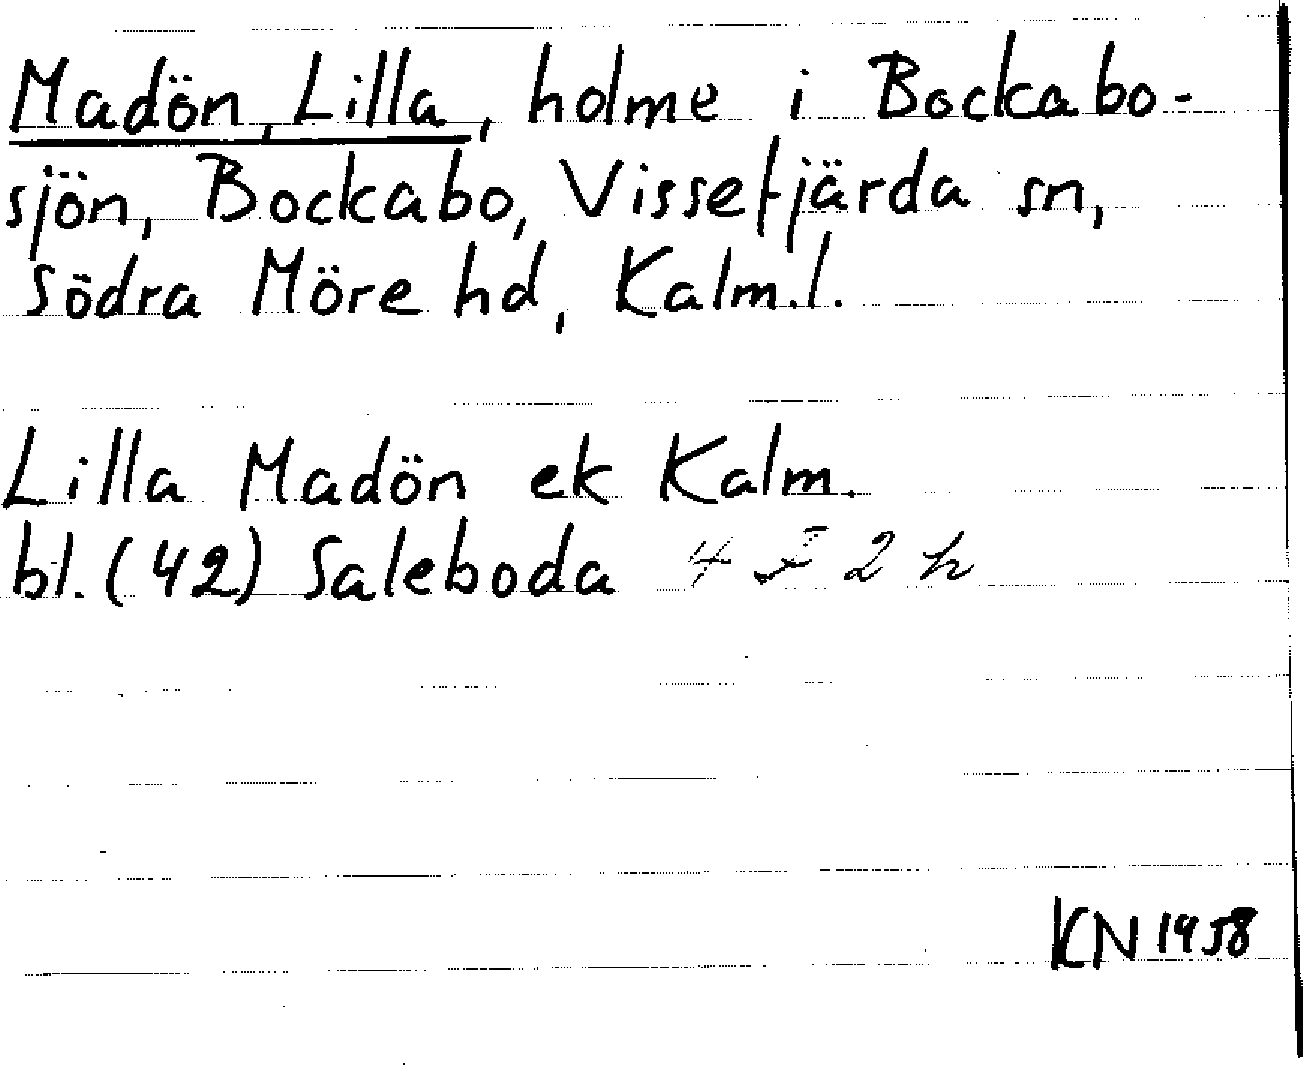 Madön, Lilla, holme i Bockabo-
sjön, Bockabo, Vissefjärda sn,
Södra Möre hd, Kalm.l.
Lilla Madön ek Kalm.
bl. (42) Saleboda 4 F 2 h
KN 1958